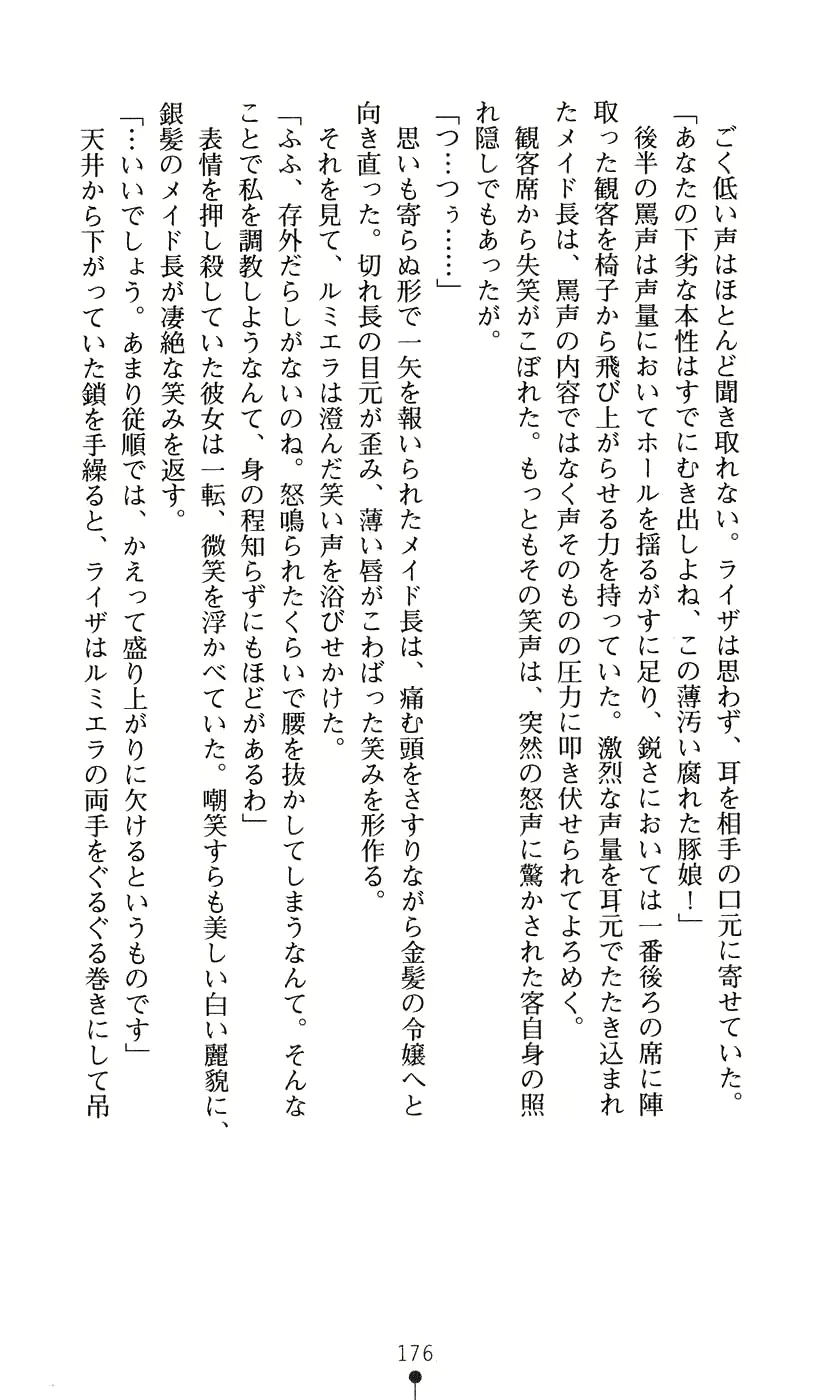 ごく低い声はほとんど聞き取れない。ライザは思わず、耳を相手の口元に寄せていた。
「あなたの下劣な本性はすでにむき出しよね、この薄汚い腐れた豚娘！」
　後半の罵声は声量においてホールを揺るがすに足り、鋭さにおいては一番後ろの席に陣
取った観客を椅子から飛び上がらせる力を持っていた。激烈な声量を耳元でたたき込まれ
たメイド長は、罵声の内容ではなく声そのものの圧力に叩き伏せられてよろめく。
　観客席から失笑がこぼれた。もっともその笑声は、突然の怒声に驚かされた客自身の照
れ隠しでもあったが。
「つ…つぅ……」
　思いも寄らぬ形で一矢を報いられたメイド長は、痛む頭をさすりながら金髪の令嬢へと
向き直った。切れ長の目元が歪み、薄い唇がこわばった笑みを形作る。
　それを見て、ルミエラは澄んだ笑い声を浴びせかけた。
「ふふ、存外だらしがないのね。怒鳴られたくらいで腰を抜かしてしまうなんて。そんな
ことで私を調教しようなんて、身の程知らずにもほどがあるわ」
　表情を押し殺していた彼女は一転、微笑を浮かべていた。嘲笑すらも美しい白い麗貌に、
銀髪のメイド長が凄絶な笑みを返す。
「…いいでしょう。あまり従順では、かえって盛り上がりに欠けるというものです」
　天井から下がっていた鎖を手繰ると、ライザはルミエラの両手をぐるぐる巻きにして吊
176